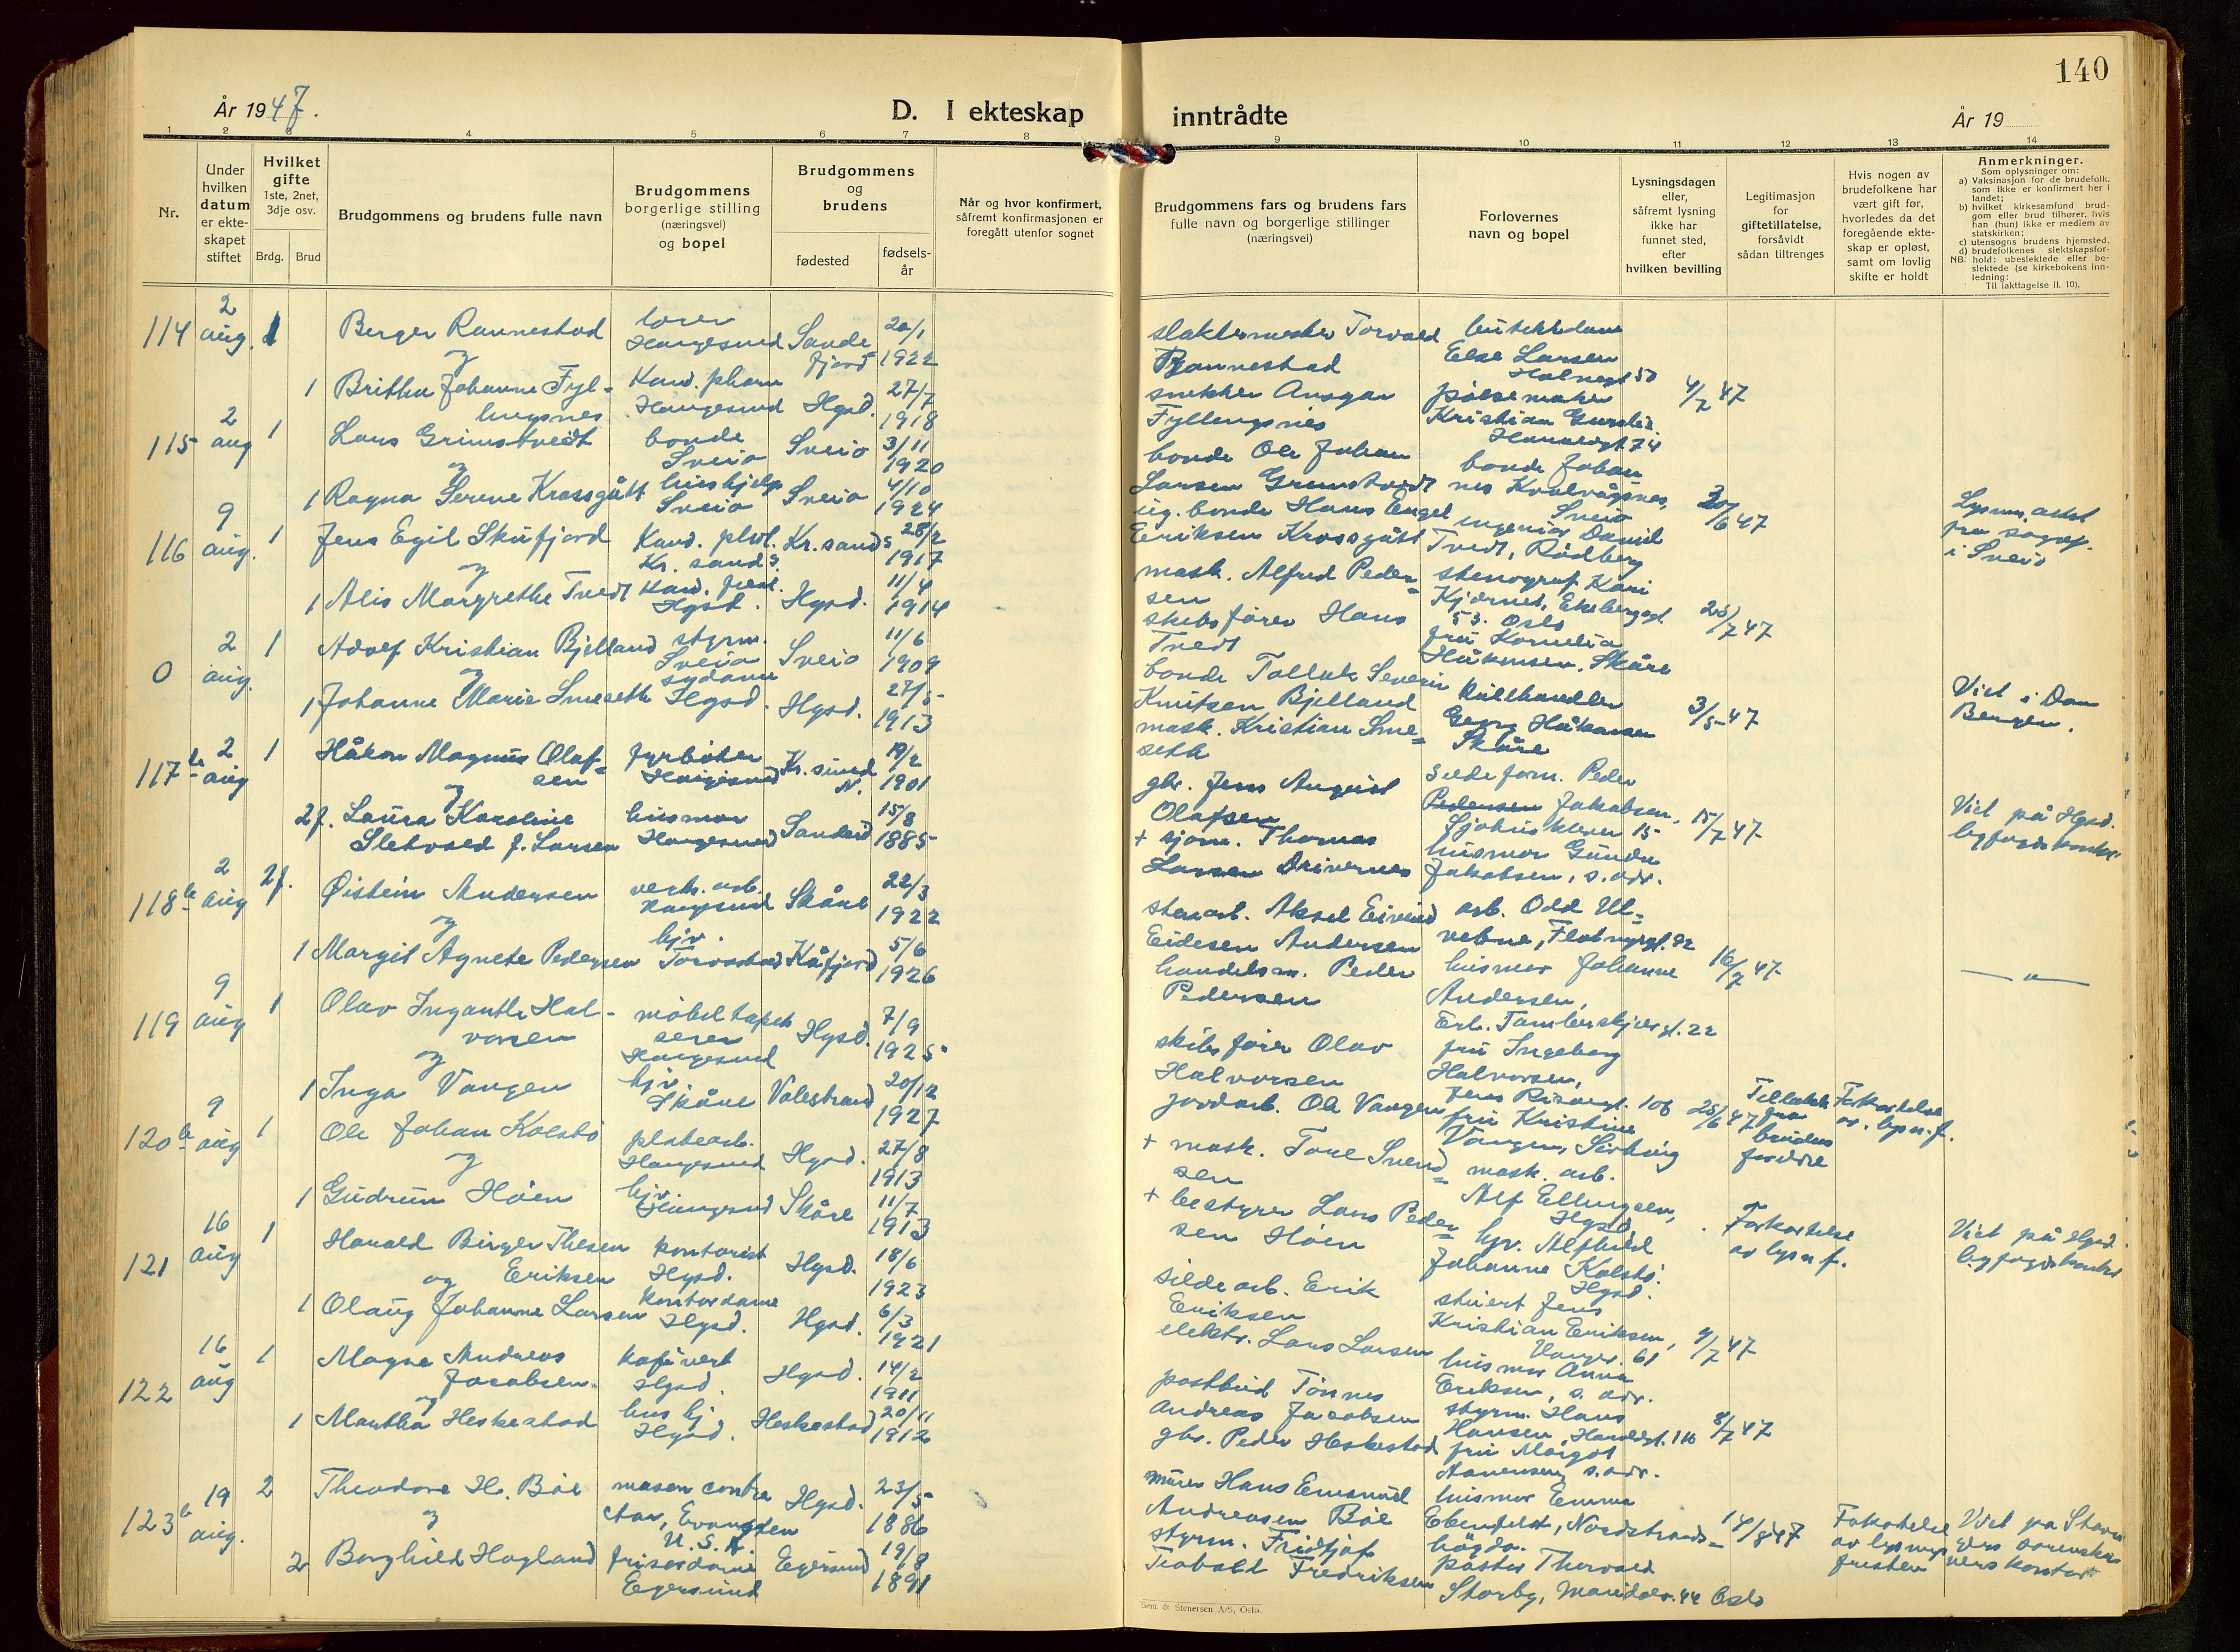 140
År 1947.
D. I ekteskap inntrådte
År 19
1 2 3 4 5 6 7 8 9 10 11 12 13 14
Nr.
Under
hvilken
datum
er ekte-
skapet
stiftet
Hvilket
gifte
1ste, 2net,
3dje osv.
Brdg. Brud
Brudgommens og brudens fulle navn
Brudgommens
borgerlige stilling
(næringsvei)
og bopel
Brudgommens
og
brudens
fødested
fødsels-
år
Når og hvor konfirmert,
såfremt konfirmasjonen er
foregått utenfor sognet
Brudgommens fars og brudens fars
fulle navn og borgerlige stillinger
(næringsvei)
Forlovernes
navn og bopel
Lysningsdagen
eller,
såfremt lysning
ikke har
funnet sted,
efter
hvilken bevilling
Legitimasjon
for
giftetillatelse,
forsåvidt
sådan tiltrenges
Hvis nogen av
brudefolkene har
vært gift før,
hvorledes da det
foregående ekte-
skap er opløst,
samt om lovlig
skifte er holdt
Anmerkninger.
Som oplysninger om:
a) Vaksinasjon for de brudefolk,
som ikke er konfirmert her i
landet;
b) hvilket kirkesamfund brud-
gom eller brud tilhører, hvis
han (hun) ikke er medlem av
statskirken;
c) utensogns brudens hjemsted.
d) brudefolkenes slektskapsfor-
NB. hold: ubeslektede eller be-
slektede (se kirkebokens inn-
ledning:
Til iakttagelse II. 10).
114 2 aug. 1 Berger Rannestad
Haugesund Sande
fjord 20/1 1922
og
1 Britha Johanne Fyl-
lingsnes
Kand. pharm
Haugesund Hgsd. 27/7 1918
slaktermester Torvald
Rannestad
snekker Ansgar
Fyllingsnes
Else Larsen
pølsemaker
Kristian
4/7 47
115 2 aug 1 Lars Grimstvedt
bonde
Sveio Sveio 3/11 1920
og
1 Ragna Serene Krossgått
hushjelp
Sveio Sveio 4/10 1924
bonde Ole Johan
Larsen Grimstvedt
bonde Hans Engel
Eriksen Krossgått
bonde Johan
nes Kvalvågnes,
Sveio
ingeniør Daniel
Tvedt, Rødberg
/6 47
i Sveio
116 9 aug. 1 Jens Egil Skufjord
Kr. sand S. Kr. sand S 28/2 1917
og
1 Alis Margrethe Tvedt
Hgsd. Hgsd. 11/4 1914
mask. Alfred Peder=
sen
skibsfører Hans
Tvedt
stenograf Kari
53. Oslo
fru Kornelia
Håkonsen. Skåre
25/7 47
0 2 aug. 1 Adolf Kristian Bjelland
styrm.
Sveio Sveio 11/6 1909
og
1 Johanne Marie Smeseth
sydame
Hgsd. Hgsd. 27/5 1913
bonde Tollak Severin
Knutsen Bjelland
mask. Kristian Sme=
seth
Georg Håkonsen
Skåre
3/5 47
Viet i Dom
Bergen.
117 b 2 aug 1 Håkon Magnus Olaf=
sen
fyrbøter
Haugesund Kr. sund
N. 19/2 1901
og
2 f. Laura Karoline
Sletvold f. Larsen
husmor
Haugesund Sandeid 15/8 1885
gbr. Jens August
Olafsen
+ sjøm. Thomas
Larsen
Peder
Pedersen Jakobsen,
15
husmor
Jakobsen, s. adr.
15/7 47
Viet på Hgsd.
118 b 2 aug 2 f. Øistein Andersen
verks. arb.
Haugesund Skåre 22/3 1922
og
1 Margit Agnete Pedersen
hjv.
Torvastad Kåfjord 5/6 1926
Aksel Eivind
Eidesen Andersen
handelsm. Peder
Pedersen
arb. Odd
husmor Johanne
Andersen,
16/7 47
— " —
119 9 aug 1 Olav Inganth Hal-
vorsen
møbeltapet
serer
Haugesund Hgsd. 7/9 1925
og
1 Inga Vangen
hjv.
Skåre Valestrand 20/12 1927
skibsfører Olav
Halvorsen
jordarb. Ole Vangen
fru Ingeborg
Halvorsen,
106
fru Kristine
Vangen,
25/6 47
fra
brudens
foreldre
Forkortelse
av lysn. f.
120 b 9 aug 1 Ole Johan Kolstø
platearb.
Haugesund Hgsd. 27/8 1913
og
1 Gudrun Høien
hjv.
Haugesund Skåre 11/7 1913
+ mask. Tore Svend=
sen
+ bestyrer Lars Peder=
sen Høien
mask. arb.
Alf Ellingsen,
Hgsd.
hjv. Alfhild
Johanne Kolstø.
Hgsd.
Forkortelse
av lysn f.
Viet på Hgsd.
121 16 aug 1 Harald Birger Thesen
Eriksen
kontorist
Hgsd. Hgsd. 18/6 1923
og
1 Olaug Johanne Larsen
kontordame
Hgsd. Hgsd. 6/3 1921
sildearb. Erik
Eriksen
elektr. Lars Larsen
stuert Jens
Kristian Eriksen,
61
husmor Anna
Eriksen, s. adr.
9/7 47
122 16 aug 1 Magne Andreas
Jacobsen.
kafevert
Hgsd. Hgsd. 14/2 1911
og
1 Martha Heskestad
hushj.
Hgsd. Heskestad 20/11 1912
postbud Tønnes
Andreas Jacobsen
gbr. Peder Heskestad
styrm. Hans
Hansen, 116
fru Margot
s. adr.
8/7 47
123 b 19 aug. 2 Theodore H. Bøe
mason contra
ctor, Evanston
U. S. A. Hgsd. 23/5 1886
og
2 Borghild Hogland
frisørdame
Egersund Egersund 19/8 1891
murer Hans Emanuel
Andreasen Bøe
styrm. Fridtjof
Teobald Fredriksen
husmor Emma
Nordstrands=
høgda.
pastor Thorvald
Storby, 44 Oslo
14/8 47
av lysnings
fristen
Viet på Stavan
vers kontor
Sem & Stenersen A/S, Oslo.